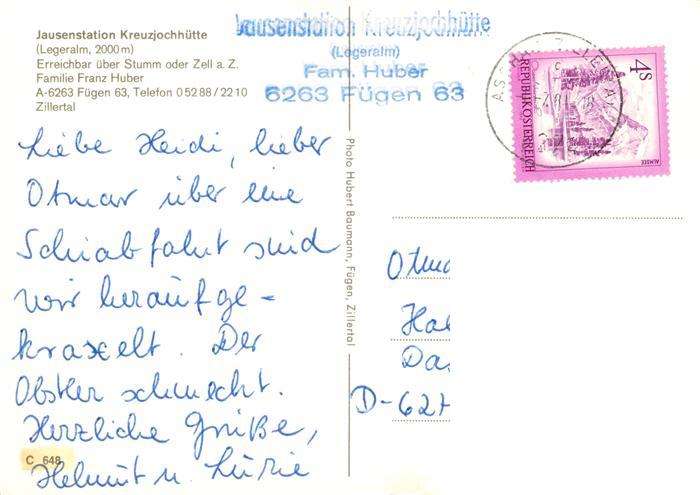 Jausenstation Kreuzjochhütte
(Legeralm, 2000 m)
Erreichbar über Stumm oder Zell a. Z.
Familie Franz Huber
A-6263 Fügen 63, Telefon 0 52 88 / 22 10
Zillertal
Jausenstation Kreuzjochhütte
(Legeralm)
Fam. Huber
6263 Fügen 63
4 S
REPUBLIK ÖSTERREICH
ALMSEE
Liebe Heidi, lieber
Otmar über eine
Schiabfahrt sind
wir heraufge-
kraxelt. Der
Obstler schmeckt.
Herzliche Grüße,
Helmut u. Luzie
C 648
Photo Hubert Baumann, Fügen, Zillertal
Otma
Ha
Da
D-627